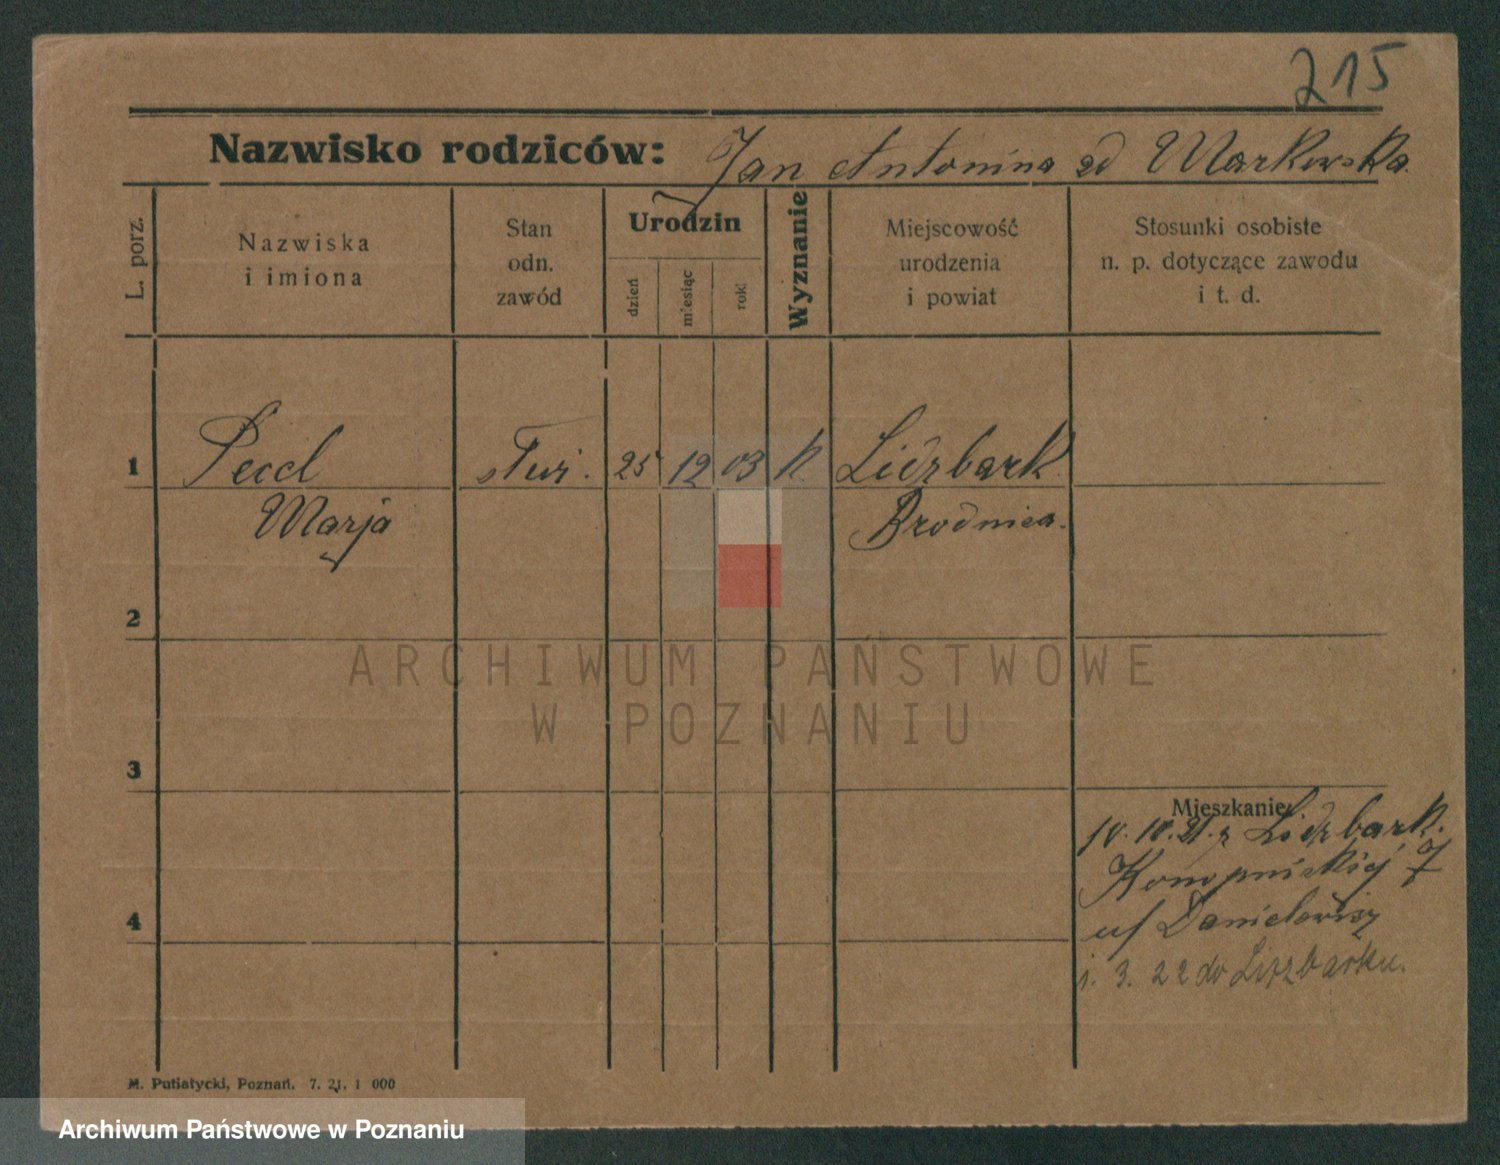 215
Nazwisko rodziców: Jan Antonina zd Markowska
L. porz.
Nazwiska
i imiona
Stan
odn.
zawód
Urodzin
dzień
miesiąc
rok
Wyznanie
Miejscowość
urodzenia
i powiat
Stosunki osobiste
n. p. dotyczące zawodu
i t. d.
1 Pecel służ. 25 12 03 K. Lidzbark
Marja Brodnica.
2
3
4
Mieszkanie:
10. 10. 21. z Lidzbark.
Konopnickiej 7
u/ Danielewiczy
1. 3. 22 do Lidzbarku.
M. Putiatycki, Poznań. 7. 21. 1 000
ARCHIWUM PAŃSTWOWE
W POZNANIU
Archiwum Państwowe w Poznaniu